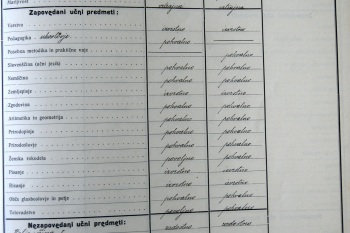 Marljivost vztrajna vztrajna
Zapovedani učni predmeti:
Verstvo izvrstno izvrstno
Pedagogika pohvalno
Posebna metodika in praktične vaje pohvalno
Slovenščina (učni jezik) pohvalno pohvalno
Nemščina pohvalno pohvalno
Zemljepisje izvrstno izvrstno
Zgodovina pohvalno pohvalno
Aritmetika in geometrija pohvalno pohvalno
Prirodopisje pohvalno pohvalno
Prirodoslovje pohvalno pohvalno
Ženska ročna dela povoljno pohvalno
Pisanje izvrstno izvrstno
Risanje izvrstno izvrstno
Obče glasboslovje in petje pohvalno pohvalno
Telovadstvo povoljno pohvalno
Nezapovedani učni predmeti:
zadostno zadostno